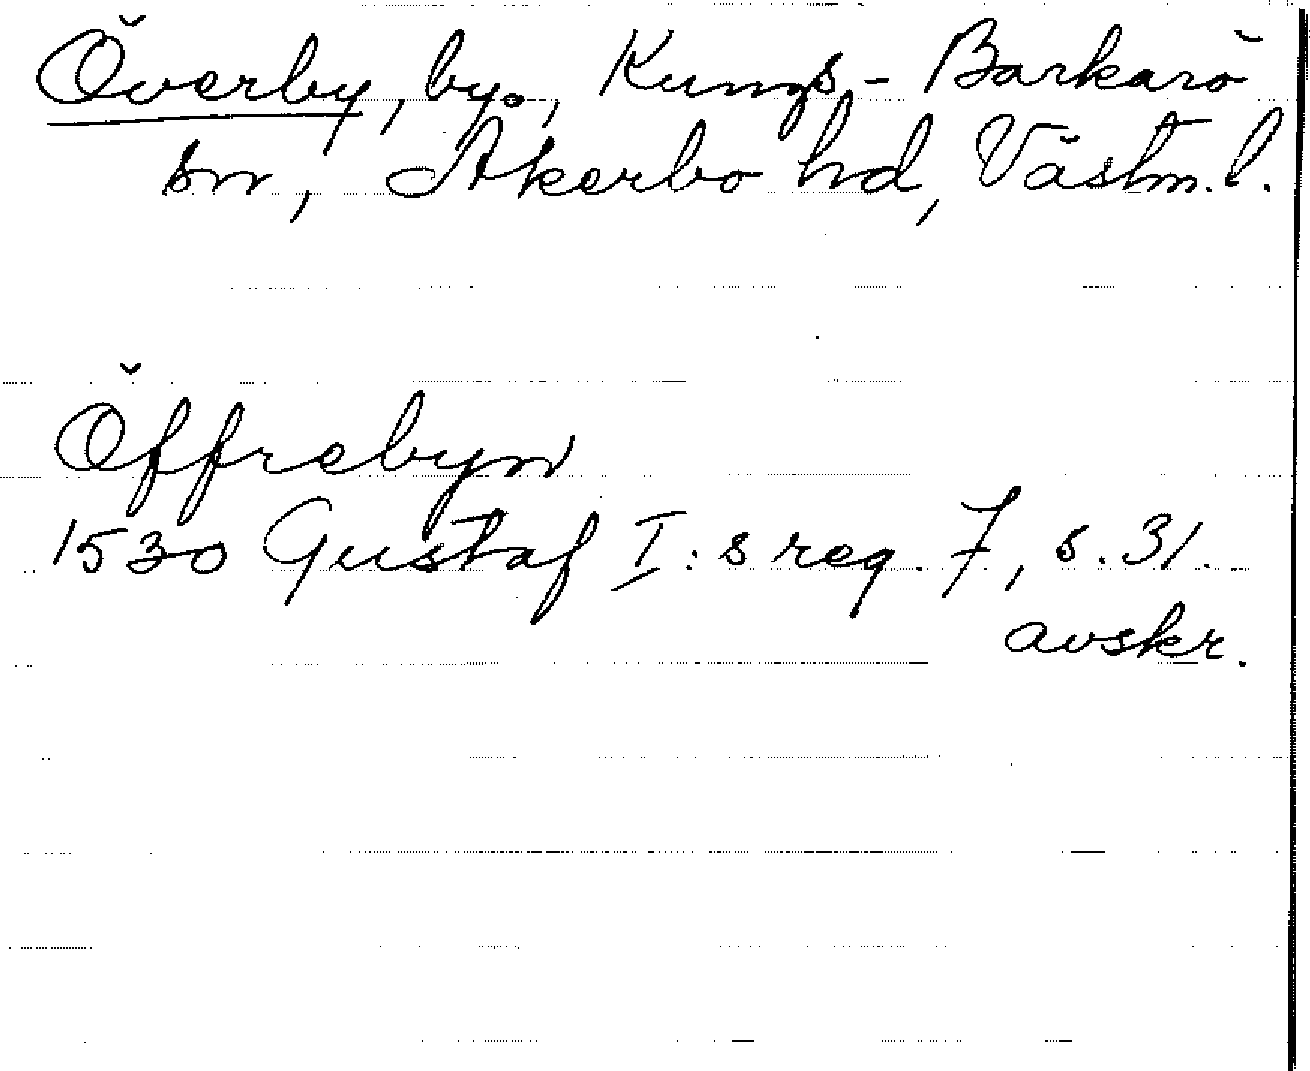 Överby, by., Kungs-Barkarö
sn, Åkerbo hd, Västm. l.
Öffrebyn
1530 Gustaf I:s reg. 7, s. 31.
avskr.